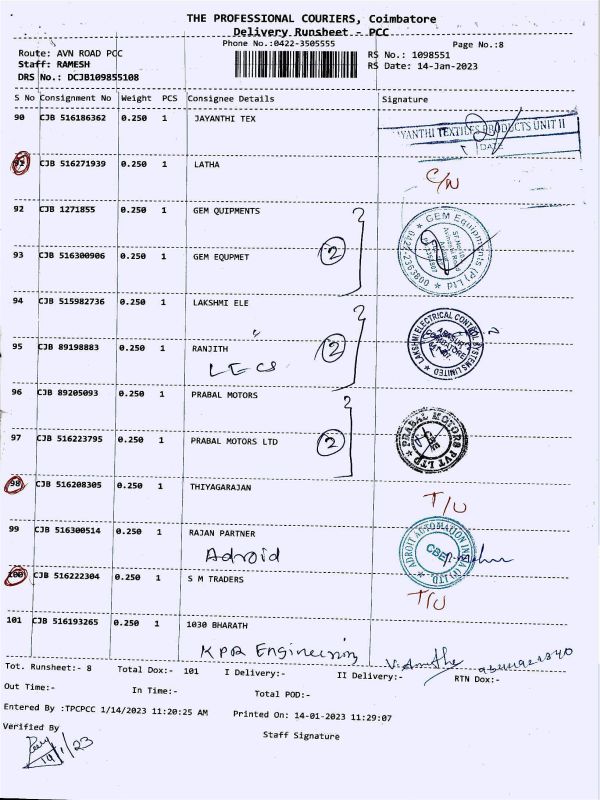 THE PROFESSIONAL COURIERS, Coimbatore
Delivery Runsheet - PCC
Phone No.:0422-3505555 Page No.:8
Route: AVN ROAD PCC RS No.: 1098551
Staff: RAMESH RS Date: 14-Jan-2023
DRS No.: DCJB109855108
S No Consignment No Weight PCS Consignee Details Signature
90 CJB 516186362 0.250 1 JAYANTHI TEX
YANTHI TEXTILES PRODUCTS UNIT II
DATE
91 CJB 516271939 0.250 1 LATHA C/N
92 CJB 1271855 0.250 1 GEM QUIPMENTS
2 GEM Equipments (P) Ltd
93 CJB 516300906 0.250 1 GEM EQUPMET
94 CJB 515982736 0.250 1 LAKSHMI ELE
2 LAKSHMI ELECTRICAL CONTROL SYSTEMS LIMITED
95 CJB 89198883 0.250 1 RANJITH
LECS
96 CJB 89205093 0.250 1 PRABAL MOTORS
2 PRABAL MOTORS PVT LTD
97 CJB 516223795 0.250 1 PRABAL MOTORS LTD
98 CJB 516208305 0.250 1 THIYAGARAJAN T/U
99 CJB 516300514 0.250 1 RAJAN PARTNER
Adroid ADROIT AUTOMATION INDIA (P) LTD. CBE
100 CJB 516222304 0.250 1 S M TRADERS T/U
101 CJB 516193265 0.250 1 1030 BHARATH
KPR Engineering
Tot. Runsheet:- 8 Total Dox:- 101 I Delivery:- II Delivery:- RTN Dox:-
Out Time:- In Time:- Total POD:-
Entered By :TPCPCC 1/14/2023 11:20:25 AM Printed On: 14-01-2023 11:29:07
Verified By Staff Signature
14/1/23